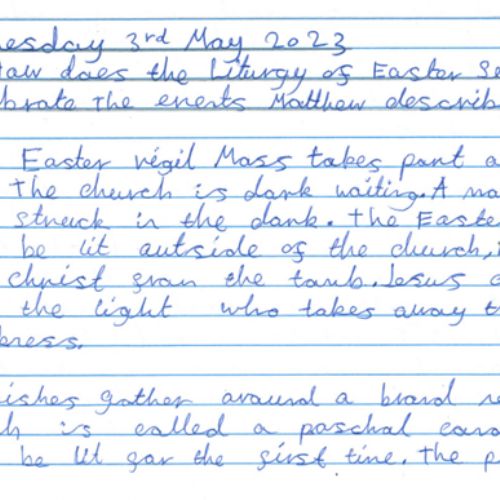 nesday 3rd May 2023
How does the Liturgy of Easter Se
brate the events Matthew describ
Easter vigil Mass takes part a
The church is dark waiting. A ma
struck in the dark. The Easte
be lit outside of the church,
christ from the tomb. Jesus
the light who takes away t
kness.
ishes gather around a brand ne
h is called a paschal can
be lit for the first time. The p